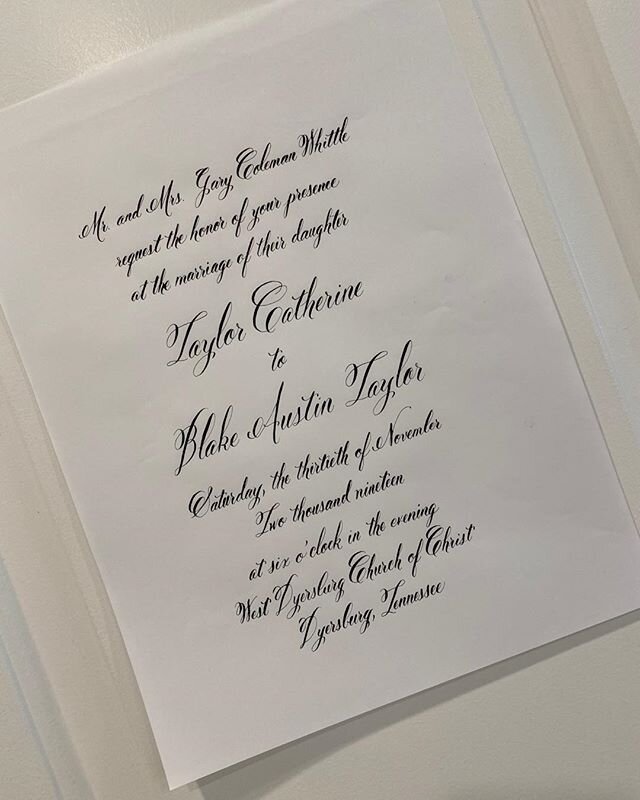 Mr. and Mrs. Gary Coleman Whittle
request the honor of your presence
at the marriage of their daughter
Taylor Catherine
to
Blake Austin Taylor
Saturday, the thirtieth of November
Two thousand nineteen
at six o'clock in the evening
West Dyersburg Church of Christ
Dyersburg, Tennessee